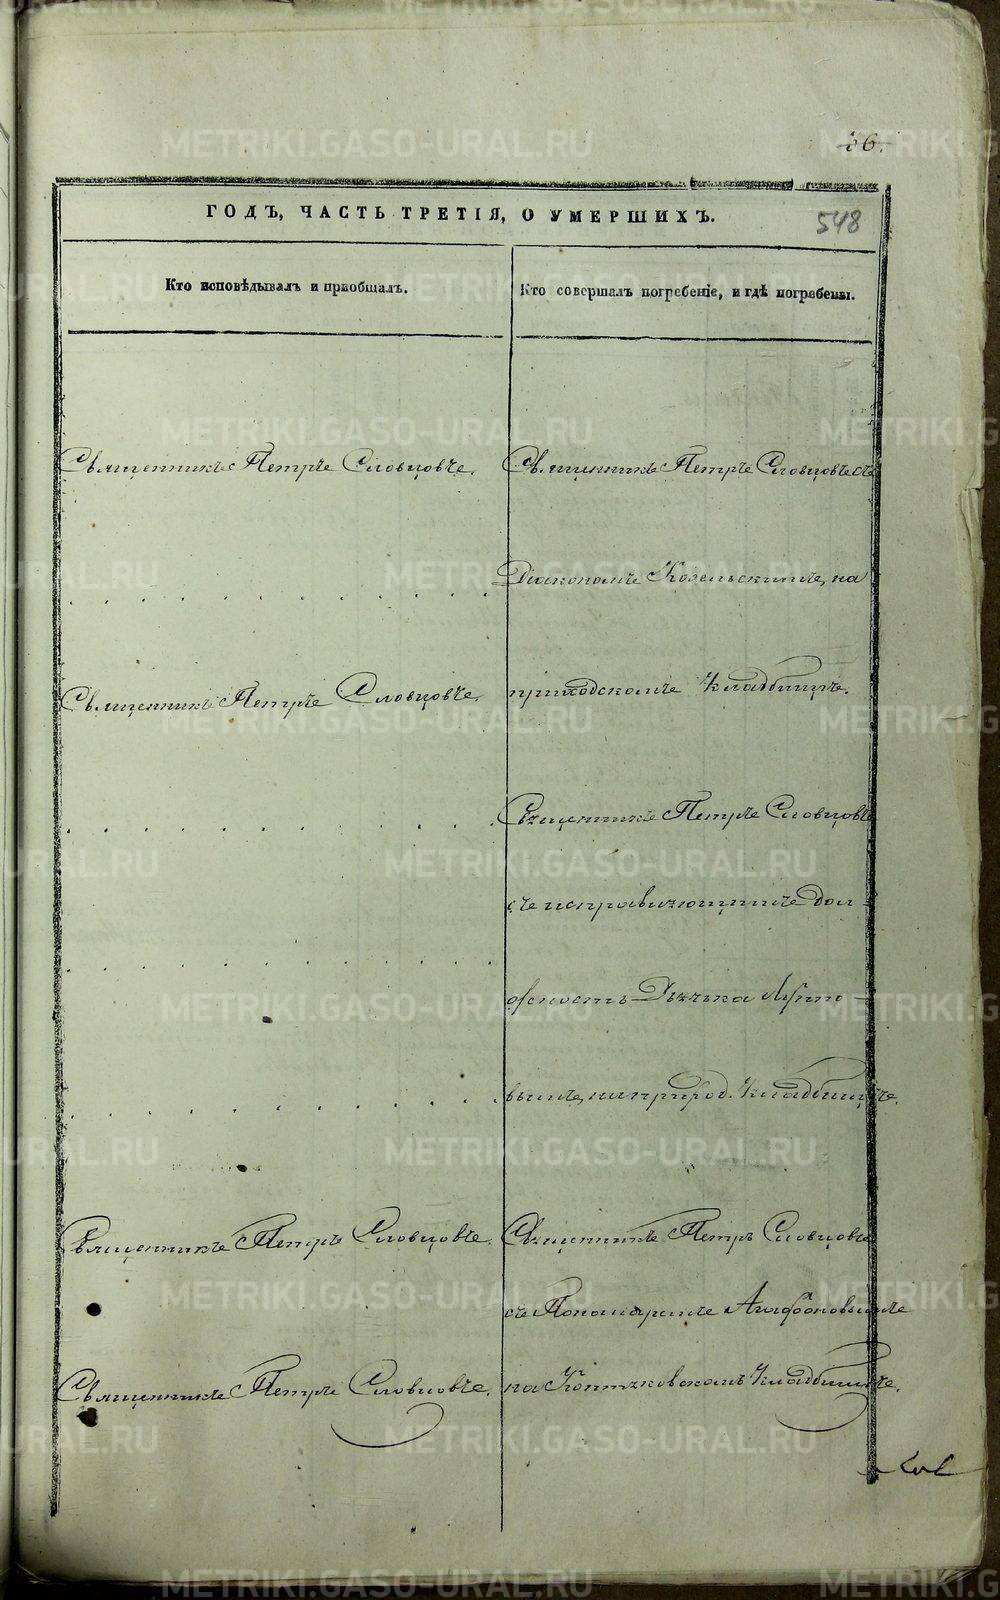 56.
ГОДЪ, ЧАСТЬ ТРЕТІЯ, О УМЕРШИХЪ.
548
Кто исповѣдывалъ и пріобщалъ.
Кто совершалъ погребеніе, и гдѣ погребены.
Священникъ Петръ Словцовъ.
Священникъ Петръ Словцовъ съ
Діакономъ Козельскимъ, на
Священникъ Петръ Словцовъ.
приходскомъ кладбищѣ.
Священникъ Петръ Словцовъ
съ исправляющимъ дол-
жность Дьячка
вымъ, на приход. кладбищѣ.
Священникъ Петръ Словцовъ.
Священникъ Петръ Словцовъ
съ Пономаремъ Агафоновымъ
Священникъ Петръ Словцовъ.
на Коптяковскомъ кладбищѣ.
METRIKI.GASO-URAL.RU